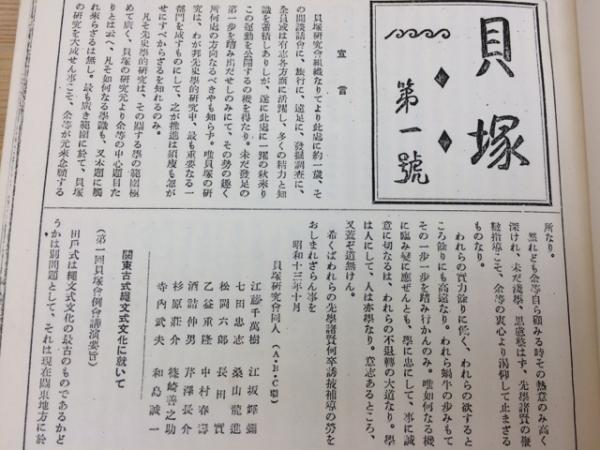 貝塚
第一號
宣言
貝塚研究會組織なりてより此處に約一歲、そ
の間談話會に、旅行に、遠足に、發掘調査に、
全員或は有志各方面に活躍し、多くの精力と知
識を蓄積しありしが、遂に此處に一躍の秋來り
この運動を公開するの機を得たり。未だ發足の
第一步を踏み出だせしのみにて、その勢の趨く
所何處の方向なるべきやも知らず。唯貝塚の研
究は、わが邦先史學的研究中、最も重要なる一
部門を成すものにして、之が推進は須臾も怠が
せにすべからざるを知れるのみ。
凡そ先史學的研究は、その關する學の範圍極
めて廣く、貝塚の研究元より余等の中心題目た
りとは云へ、凡そ如何なる學識も、又本題に觸
れ來らざるは無し。最も廣き範圍に於て、貝塚
の研究を大成せん事こそ、余等が元來念願する
所なり。
然れども余等自ら顧みる時その熱意のみ高く
深けれ、未だ淺學、思慮整はず、先學諸賢の
指導こそ、余等の衷心より渴仰して止まざる
ものなり。
われらの實力餘りに低く、われらの欲すると
ころ餘りにも高遠なり。われら蝸牛の歩みもて
その一步一步を踏み行かんのみ。唯如何なる機
に臨み變に應ぜんとも、學に忠にして、事に誠
意に切なるは、われらの不退轉の大道なり。學
は人にして、人は亦學なり。意志あるところ、
又蓋ぞ道無けん。
希くばわれらの先學諸賢何卒誘掖補導の勞を
おしまれざらん事を
昭和十三年十月
貝塚研究會同人(A・B・C順)
江藤千萬樹 江坂輝彌
七田忠志 桑山龍進
松岡六郎 長田實
乙益重隆 中村春壽
酒詰仲男 芹澤長介
杉原莊介 篠崎善之助
寺內武夫 和島誠一
關東古式繩文式文化に就いて
(第一回貝塚會例會講演要旨)
田戶式は繩文式文化の最古のものであるかど
うかは別問題として、それは現在關東地方に於